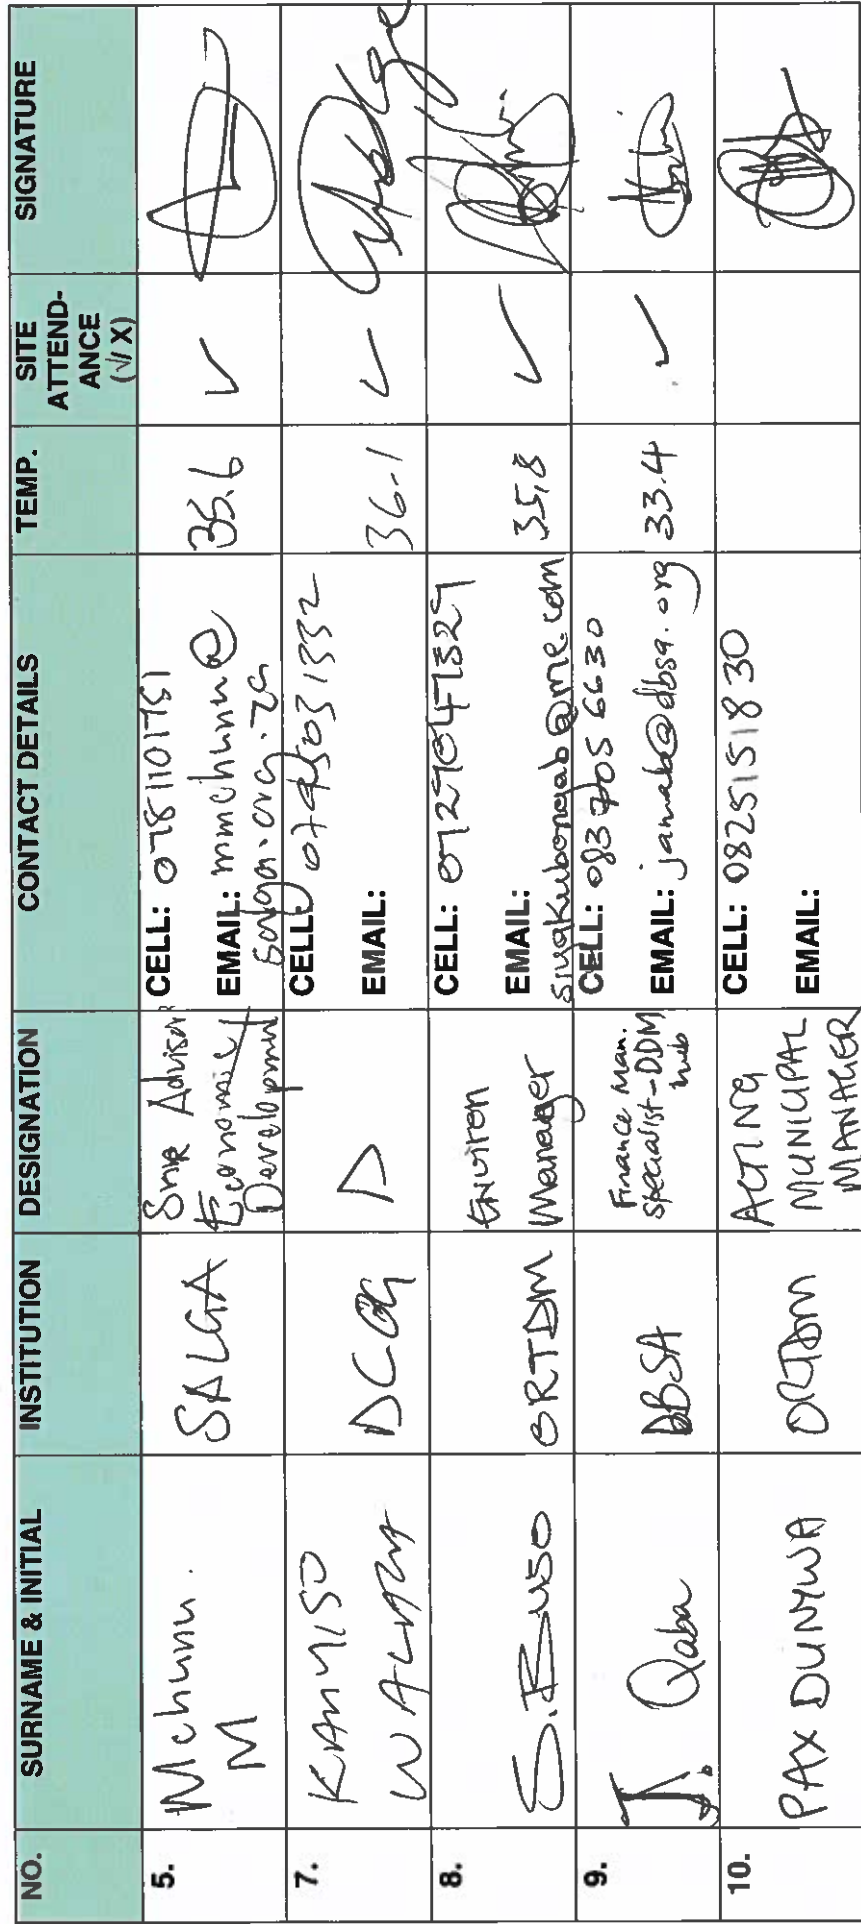 NO.
SURNAME & INITIAL
INSTITUTION
DESIGNATION
CONTACT DETAILS
TEMP.
SITE
ATTEND-
ANCE
(√/ X)
SIGNATURE
5.
Mchunu.
M
SALGA
Snr Advisor
Economic
Development
CELL: 0781101751
EMAIL: mmchunu@
salga.org.za
35.6
✓
7.
KANYISO
WALAZA
DCOG
D
CELL:
EMAIL:
36.1
✓
8.
S.BUSO
ORTDM
Environ
Manager
CELL:
EMAIL:
siyakubongab@me.com
35,8
✓
9.
J. Qaba
DBSA
Finance Man.
specialist-DDM
hub
CELL: 083 705 6630
EMAIL: jamaka@dbsa.org
33.4
✓
10.
PAX DUNYWA
ORTDM
ACTING
MUNICIPAL
MANAGER
CELL: 0825151830
EMAIL: